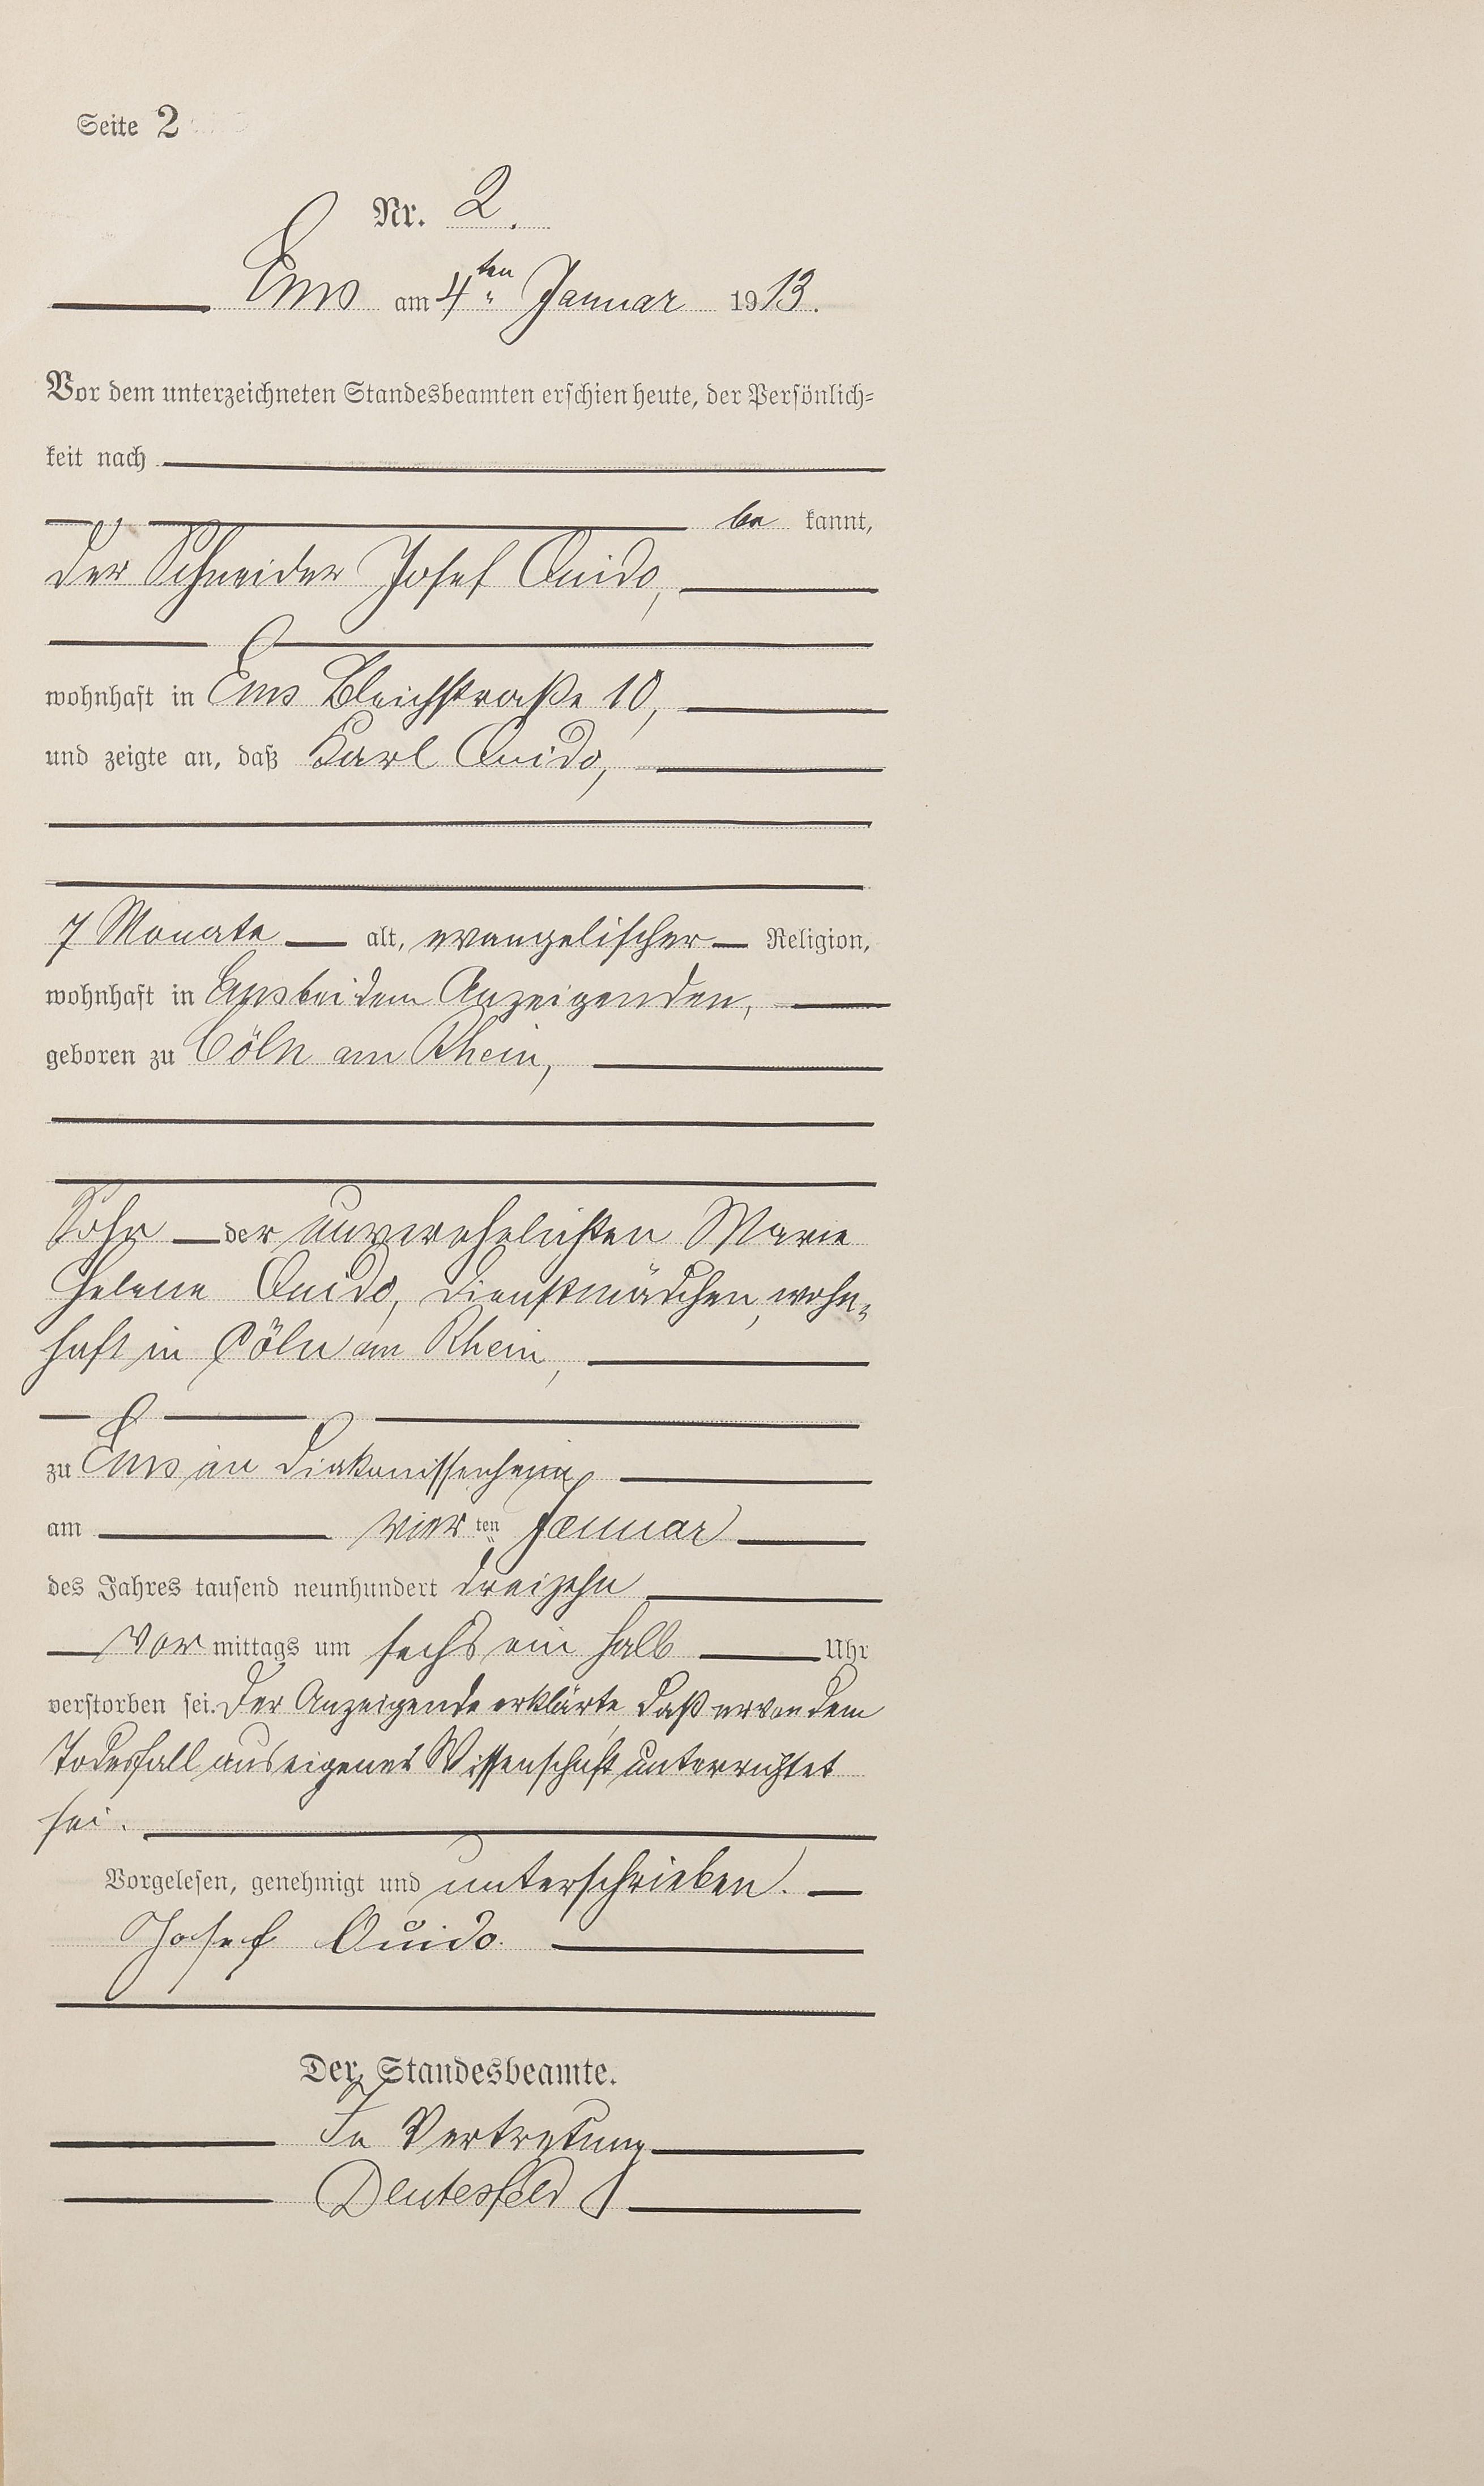 Seite 2
Nr. 2.
Ems am 4ten Januar 1913.
Vor dem unterzeichneten Standesbeamten erschien heute, der Persönlich=
keit nach
be kannt,
der Schneider Josef Ouido,
wohnhaft in Ems Bleichstraße 10,
und zeigte an, daß Karl Ouido,
7 Monate alt, evangelischer Religion,
wohnhaft in Ems bei dem Anzeigenden,
geboren zu Cöln am Rhein,
Sohn der unverehelichten Marie
Helene Ouido, Dienstmädchen, wohn=
haft in Cöln am Rhein,
zu Ems im Diakonissenheim
am vierten Januar
des Jahres tausend neunhundert dreizehn
Vor mittags um sechs ein halb Uhr
verstorben sei. Der Anzeigende erklärte, daß er von dem
Todesfall aus eigener Wissenschaft unterrichtet
sei.
Vorgelesen, genehmigt und unterschrieben.
Josef Ouido.
Der Standesbeamte.
In Vertretung
Deutesfeld